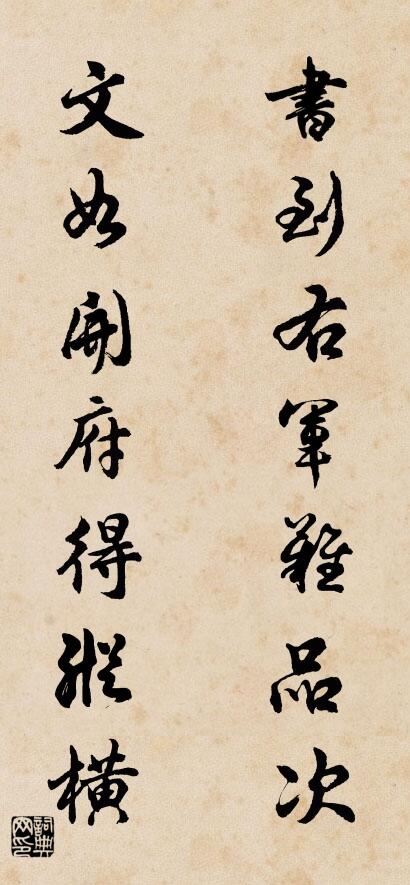 書到右軍難品次
文如開府得縱橫
詞典网印